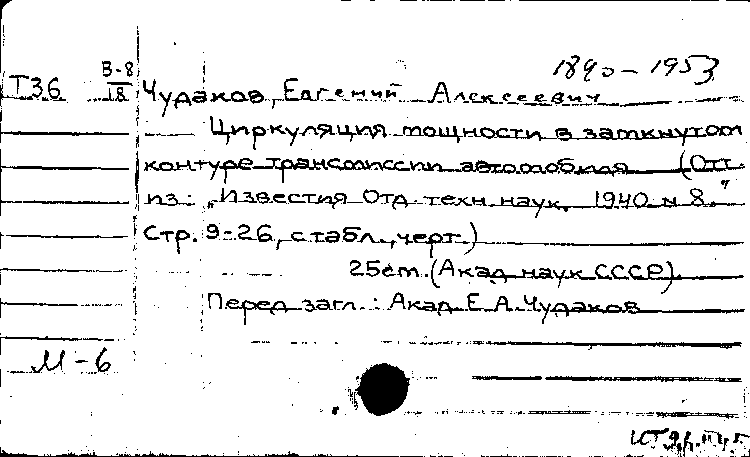 1890-1953
Т36 В-8/18 Чудаков, Евгений Алексеевич
Циркуляция мощности в замкнутом
контуре трансмиссии автомобиля (Отт.
из: „Известия Отд. техн. наук. 1940 N 8."
Стр. 9-26, с табл., черт.)
25см. (Акад. наук СССР).
Перед загл.: Акад. Е. А. Чудаков
М-6